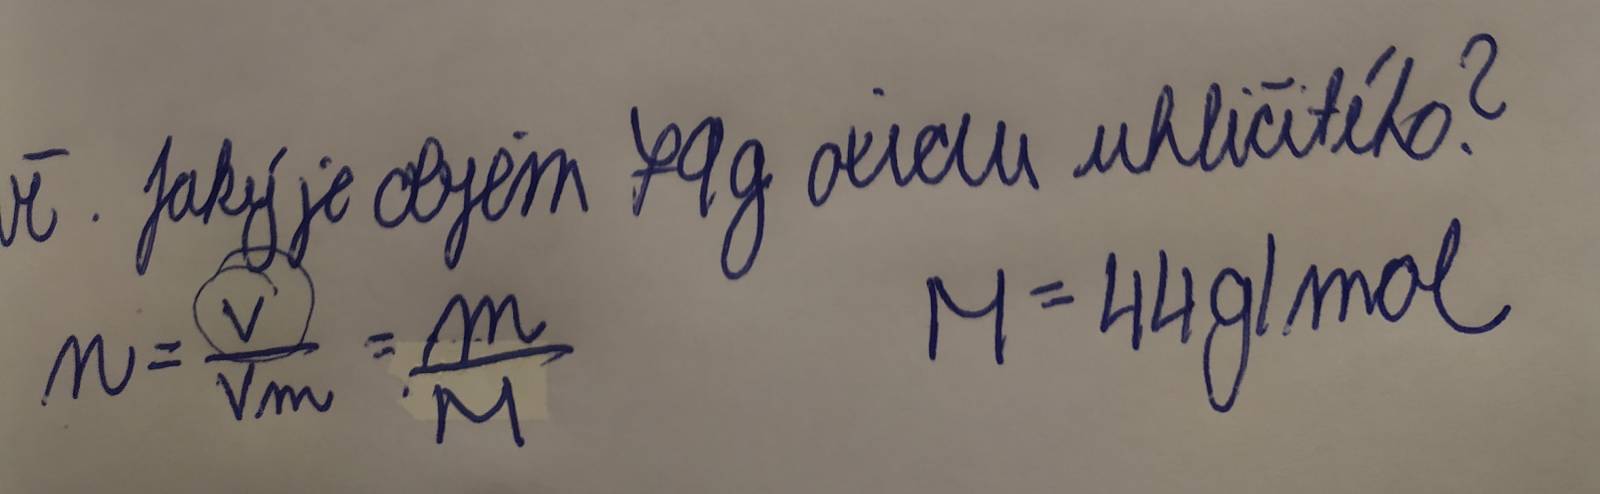 př. Jaký je objem 79g oxidu uhličitého?
n = V/Vm = m/M M = 44g/mol